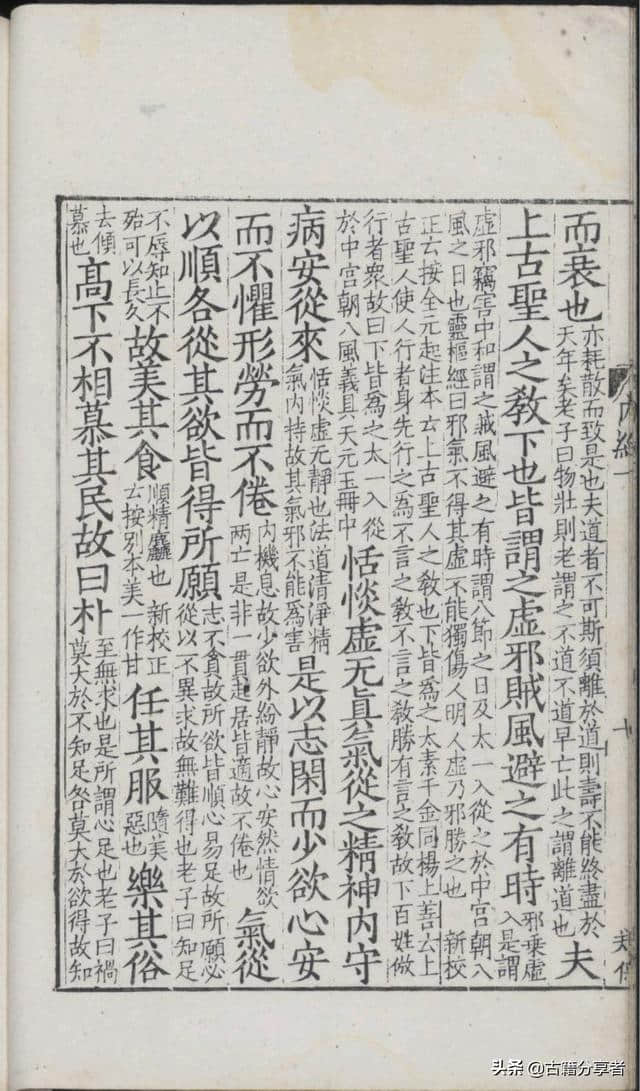 内經一
十
而衰也
亦耗散而致是也夫道者不可斯須離於道則壽不能終盡於
天年矣老子曰物壯則老謂之不道不道早亡此之謂離道也
夫
上古聖人之教下也皆謂之虛邪賊風避之有時
邪乗虛
入是謂
虛邪竊害中和謂之賊風避之有時謂八節之日及太一入從之於中宮朝八
風之日也靈樞經曰邪氣不得其虛不能獨傷人明人虛乃邪勝之也 新校
正云按全元起注本云上古聖人之教也下皆爲之太素千金同楊上善云上
古聖人使人行者身先行之爲不言之教不言之教勝有言之教故下百姓倣
行者衆故曰下皆爲之太一入從
於中宮朝八風義具天元玉冊中
恬惔虛无眞气從之精神内守
病安從來
恬惔虛无静也法道清淨精
氣内持故其氣邪不能爲害
是以志閑而少欲心安
而不懼形勞而不倦
内機息故少欲外紛靜故心安然情欲
兩亡是非一貫起居皆適故不倦也
氣從
以順各從其欲皆得所願
志不貪故所欲皆順心易足故所願必
從以不異求故無難得也老子曰知足
不辱知止不
殆可以長久
故美其食
順精麤也 新校正
云按別本美一作甘
任其服
隨美
惡也
樂其俗
去傾
慕也
高下不相慕其民故曰朴
至無求也是所謂心足也老子曰禍
莫大於不知足咎莫大於欲得故知
头条 @古籍分享者